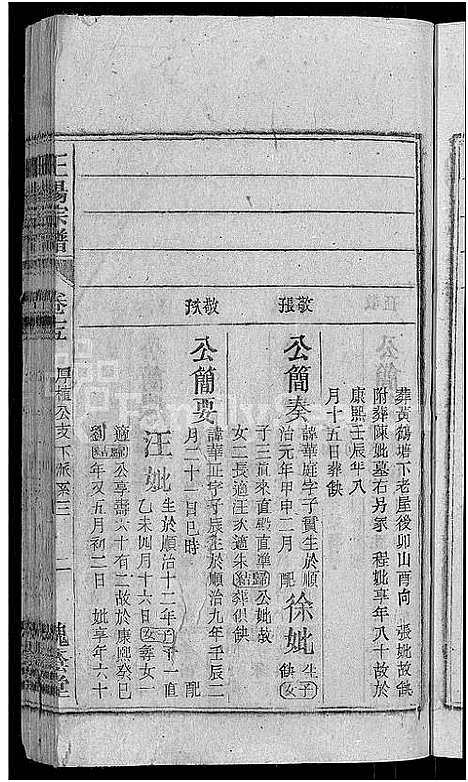 葬黃鶴塘下老屋後卯山酉向　張妣故缺
附葬陳妣墓右另冢　程妣享年八十故於
康熙壬辰年八
月十五日葬缺
敬張
公簡奏
諱華庭字子賓生於順
治元年甲申二月
配
徐妣
生子
缺女
子三直來直毅直準歸公妣故
女二長適汪次適朱結葬俱缺
敬
公簡要
諱華正字子辰生於順治九年壬辰二
月二十一日巳時
配
汪妣
生於順治十二年子一直
乙未四月十六日女一
適公享壽六十有二故於康熙癸巳
劉年又五月初二日　妣享年六十
王楊宗譜
卷十五
公支下派系三
二
堂